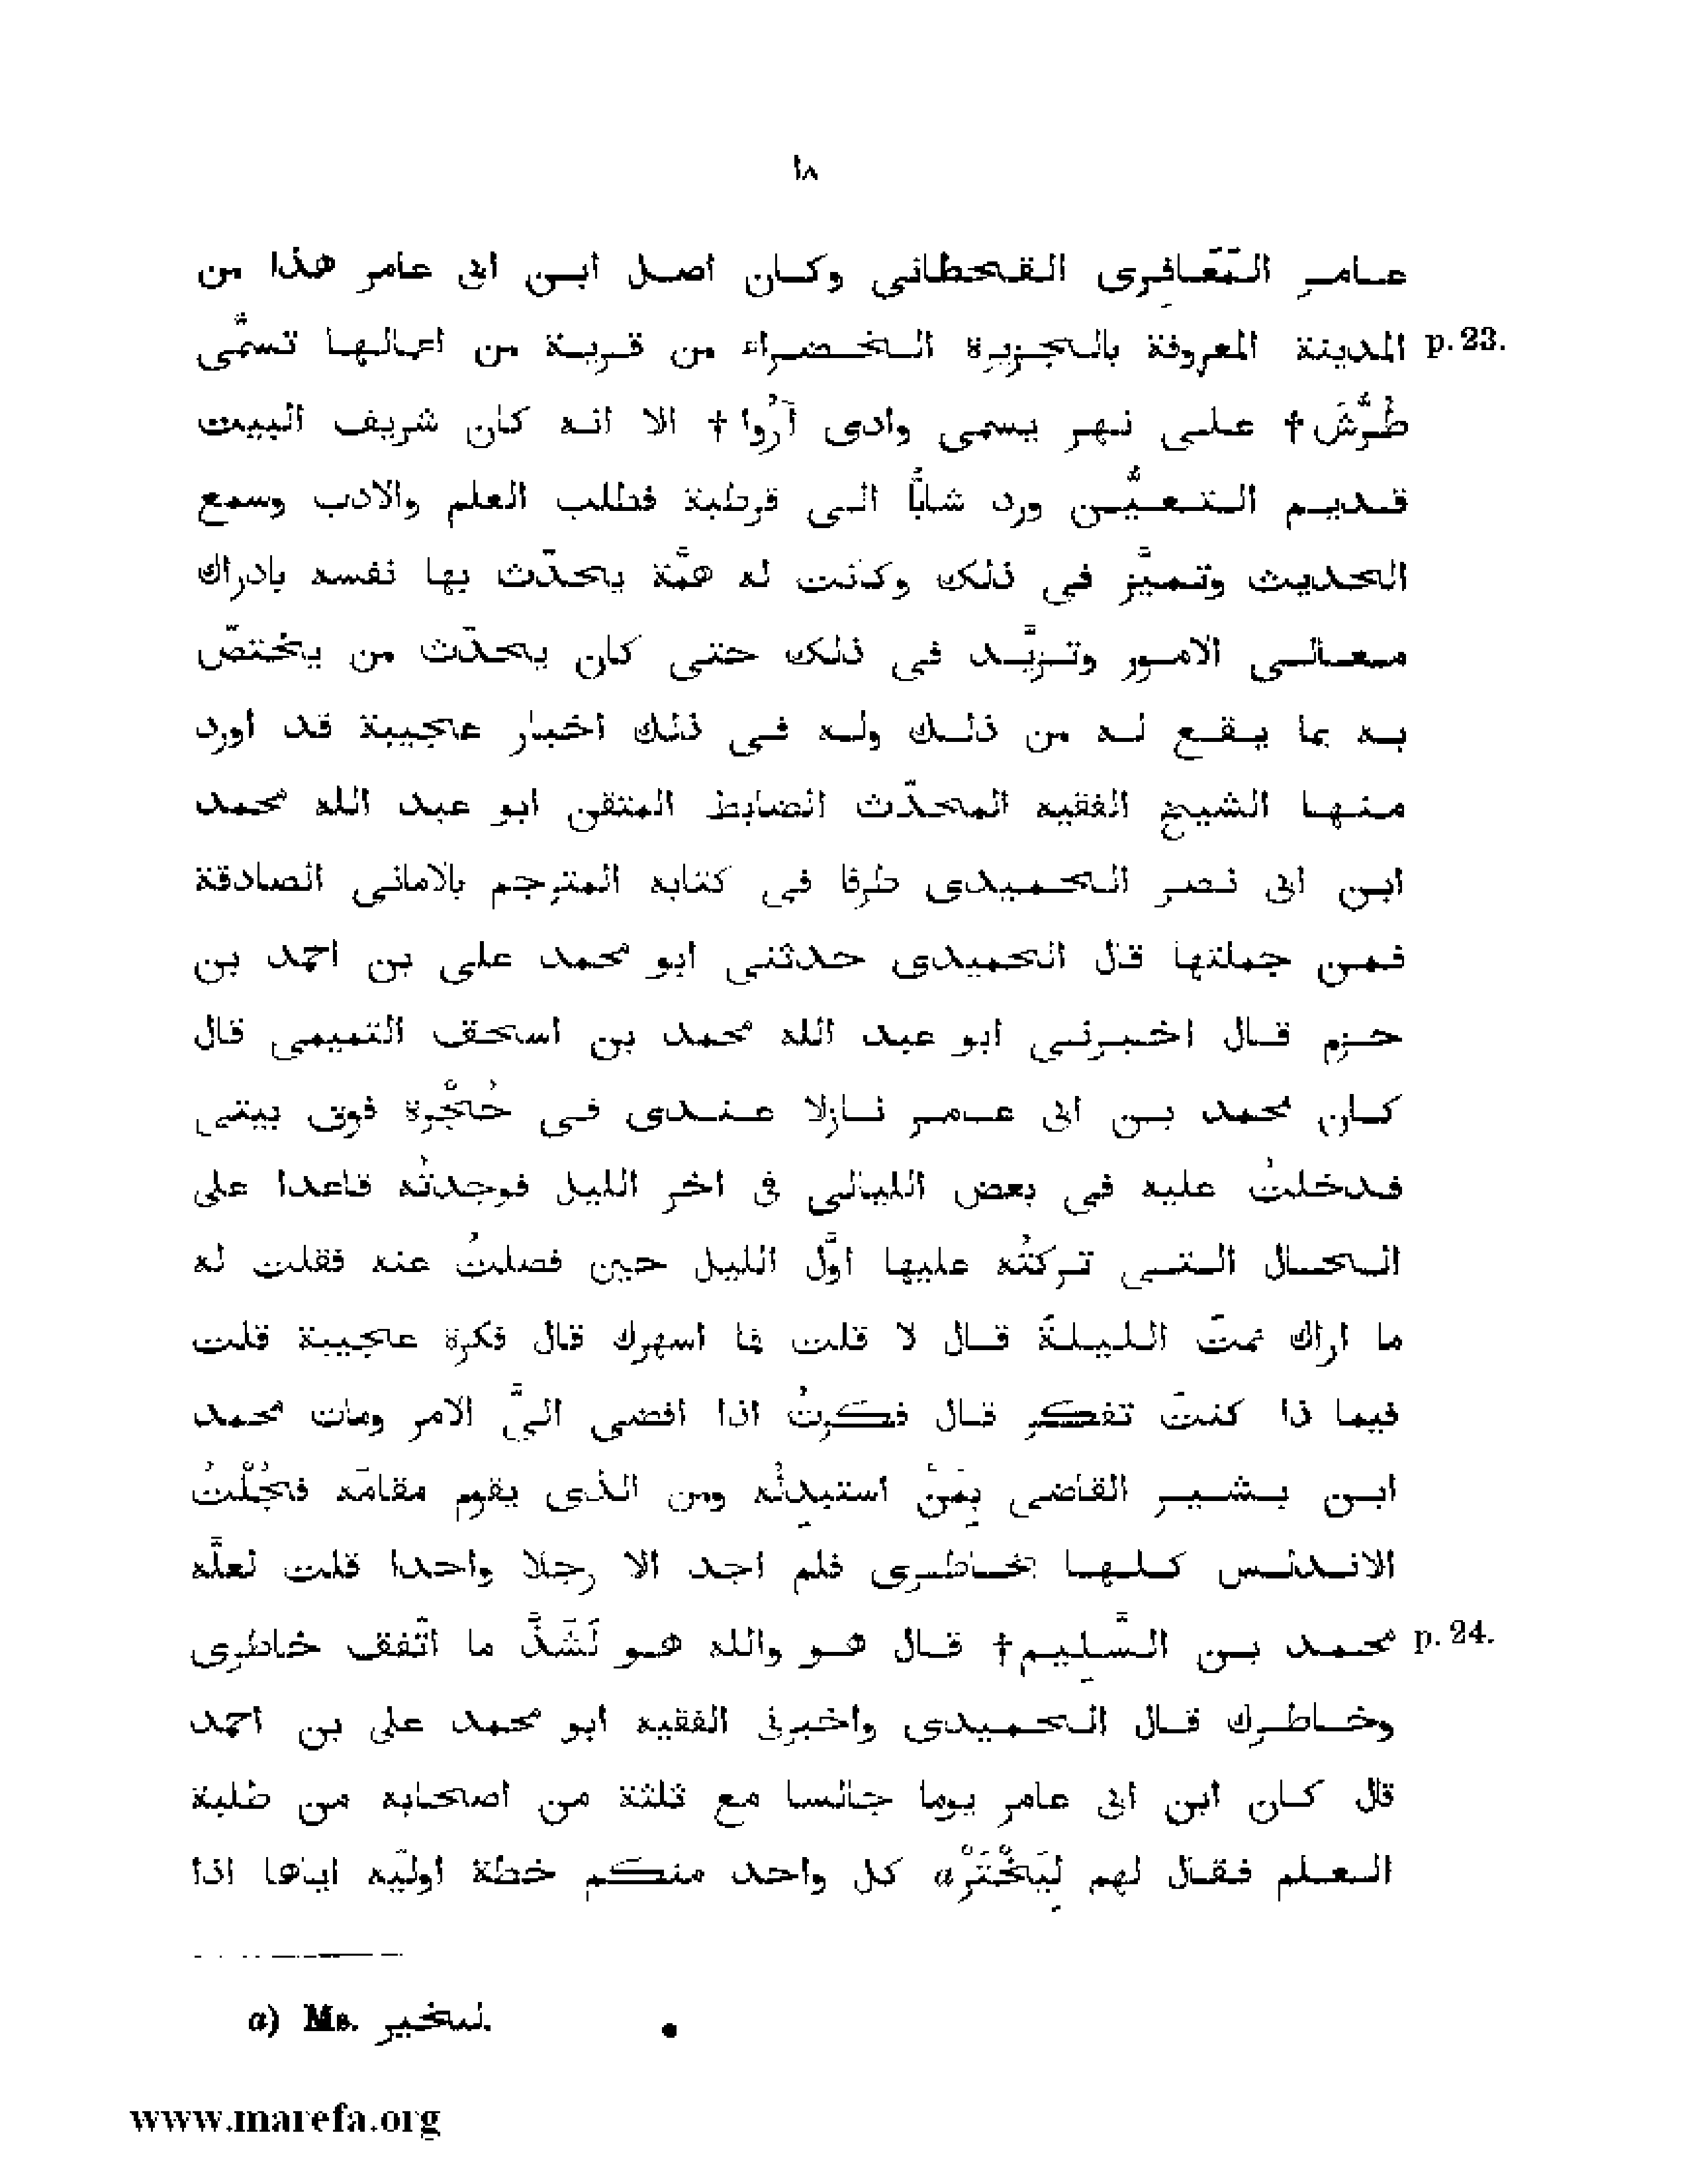 ١٨
عامر المَعَافِرى القحطانى وكان اصل ابن ابى عامر هذا من
المدينة المعروفة بالجزيرة الخضراء من قرية من اعمالها تسمَّى p. 23.
طُرَّش † على نهر يسمى وادى آرُوا † الا انه كان شريف البيت
قديم التعيُّن ورد شابًّا الى قرطبة فطلب العلم والادب وسمع
الحديث وتميَّز فى ذلك وكانت له همَّة يحدّث بها نفسه بادراك
معالى الامور وتزيَّد فى ذلك حتى كان يحدّث من يختصّ
به بما يقع له من ذلك وله فى ذلك اخبار عجيبة قد اورد
منها الشيخ الفقيه المحدّث الضابط المتقن ابو عبد الله محمد
ابن ابى نصر الحميدى طرفا فى كتابه المترجم بالامانى الصادقة
فمن جملتها قال الحميدى حدثنى ابو محمد على بن احمد بن
حزم قال اخبرنى ابو عبد الله محمد بن اسحق التميمى قال
كان محمد بن ابى عامر نازلا عندى فى حُجْرة فوق بيتى
فدخلتُ عليه فى بعض الليالى فى اخر الليل فوجدتُه قاعدا على
الحال التى تركتُه عليها اوَّل الليل حين فصلتُ عنه فقلت له
ما اراك نمتَ الليلةَ قال لا قلت فما اسهرك قال فكرة عجيبة قلت
فيما ذا كنتَ تفكر قال فكرتُ اذا افضى الىَّ الامر ومات محمد
ابن بشير القاضى بِمَنْ استبدِلُه ومن الذى يقوم مقامَه فجُلْتُ
الاندلس كلها بخاطرى فلم اجد الا رجلا واحدا قلت لعلَّه
محمد بن السَّلِيم † قال هو والله هو لَشَذَّ ما اتّفق خاطرى p. 24.
وخاطرك قال الحميدى واخبرنى الفقيه ابو محمد على بن احمد
قال كان ابن ابى عامر يوما جالسا مع ثلثة من اصحابه من طلبة
العلم فقال لهم لِيَخْتَرْ a كل واحد منكم خطة اولّيه اياها اذا
a) Ms. لىخير.
www.marefa.org